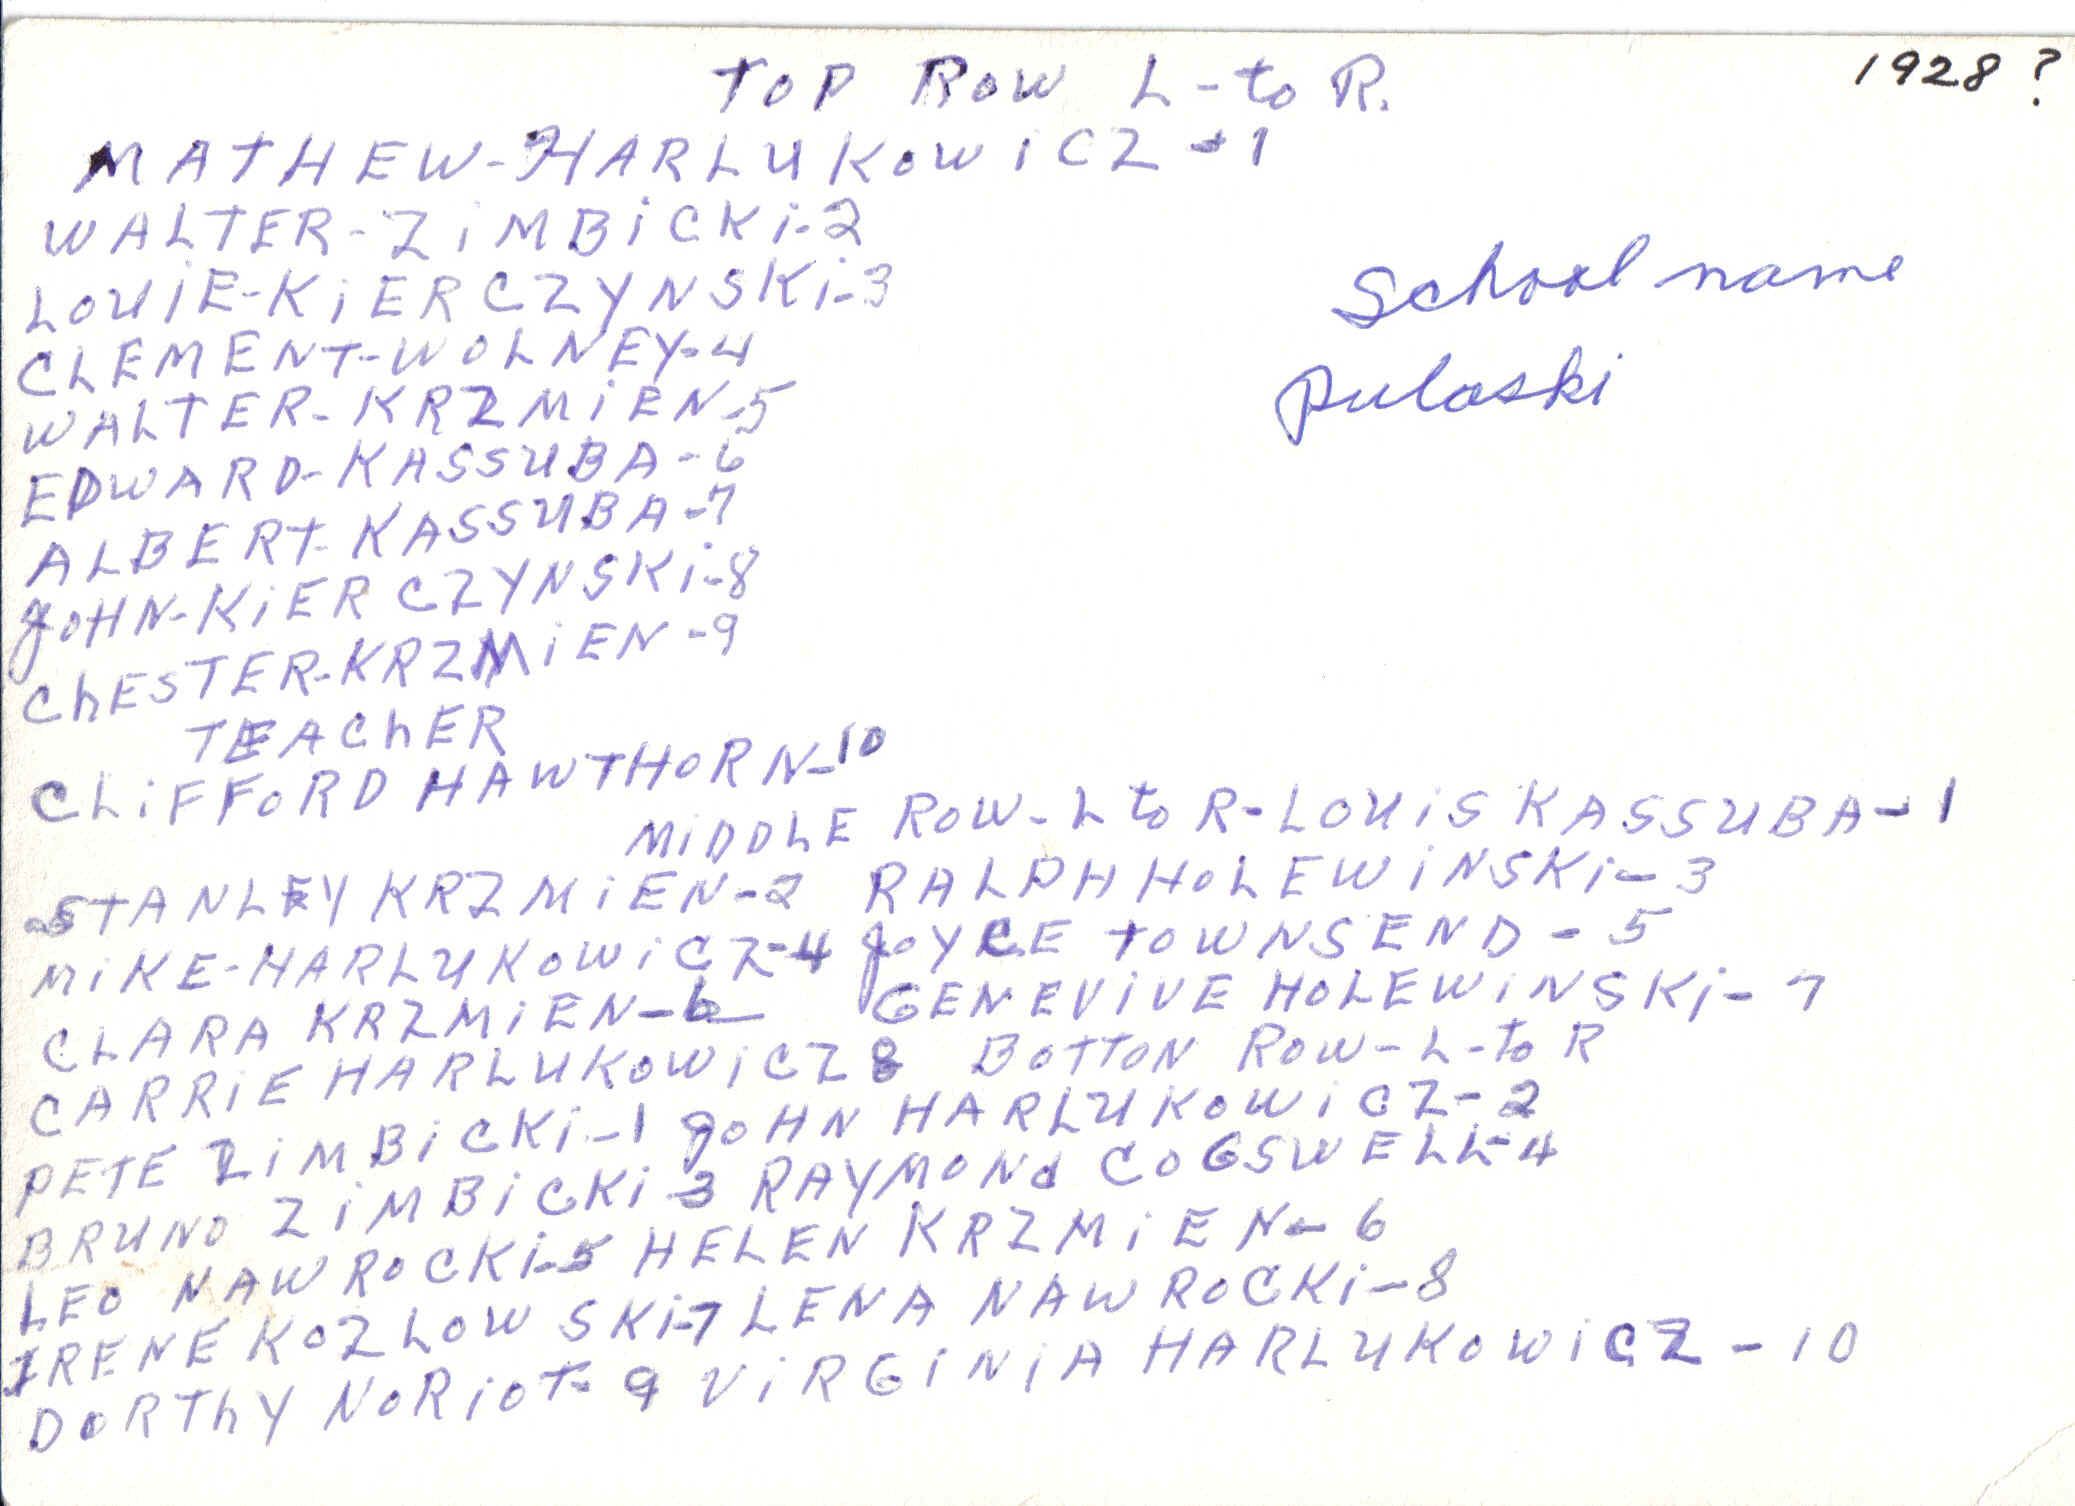 1928?
TOP ROW L-to R.
MATHEW-HARLUKOWiCZ-1
WALTER-ZiMBiCKi-2
LOUiE-KiERCZYNSKi-3
School name
CLEMENT-WOLNEY-4
Pulaski
WALTER-KRZMiEN-5
EDWARD-KASSUBA-6
ALBERT-KASSUBA-7
JOHN-KiERCZYNSKi-8
ChESTER-KRZMiEN-9
TEAChER
CLiFFORD HAWTHORN-10
MiDDLE ROW-L to R-LOUiS KASSUBA-1
STANLEY KRZMiEN-2 RALPH HOLEWiNSKi-3
MiKE-HARLUKOWiCZ-4 JOYCE TOWNSEND-5
CLARA KRZMiEN-6 GENEViVE HOLEWiNSKi-7
CARRiE HARLUKOWiCZ 8 BOTTON ROW-L-to R
PETE ZiMBiCKi-1 JOHN HARLUKOWiCZ-2
BRUNO ZiMBiCKi-3 RAYMONd COGSWELL-4
LEO NAWROCKi-5 HELEN KRZMiEN-6
IRENE KOZLOWSKi-7 LENA NAWROCKi-8
DORThY NORiOT-9 ViRGiNiA HARLUKOWiCZ-10